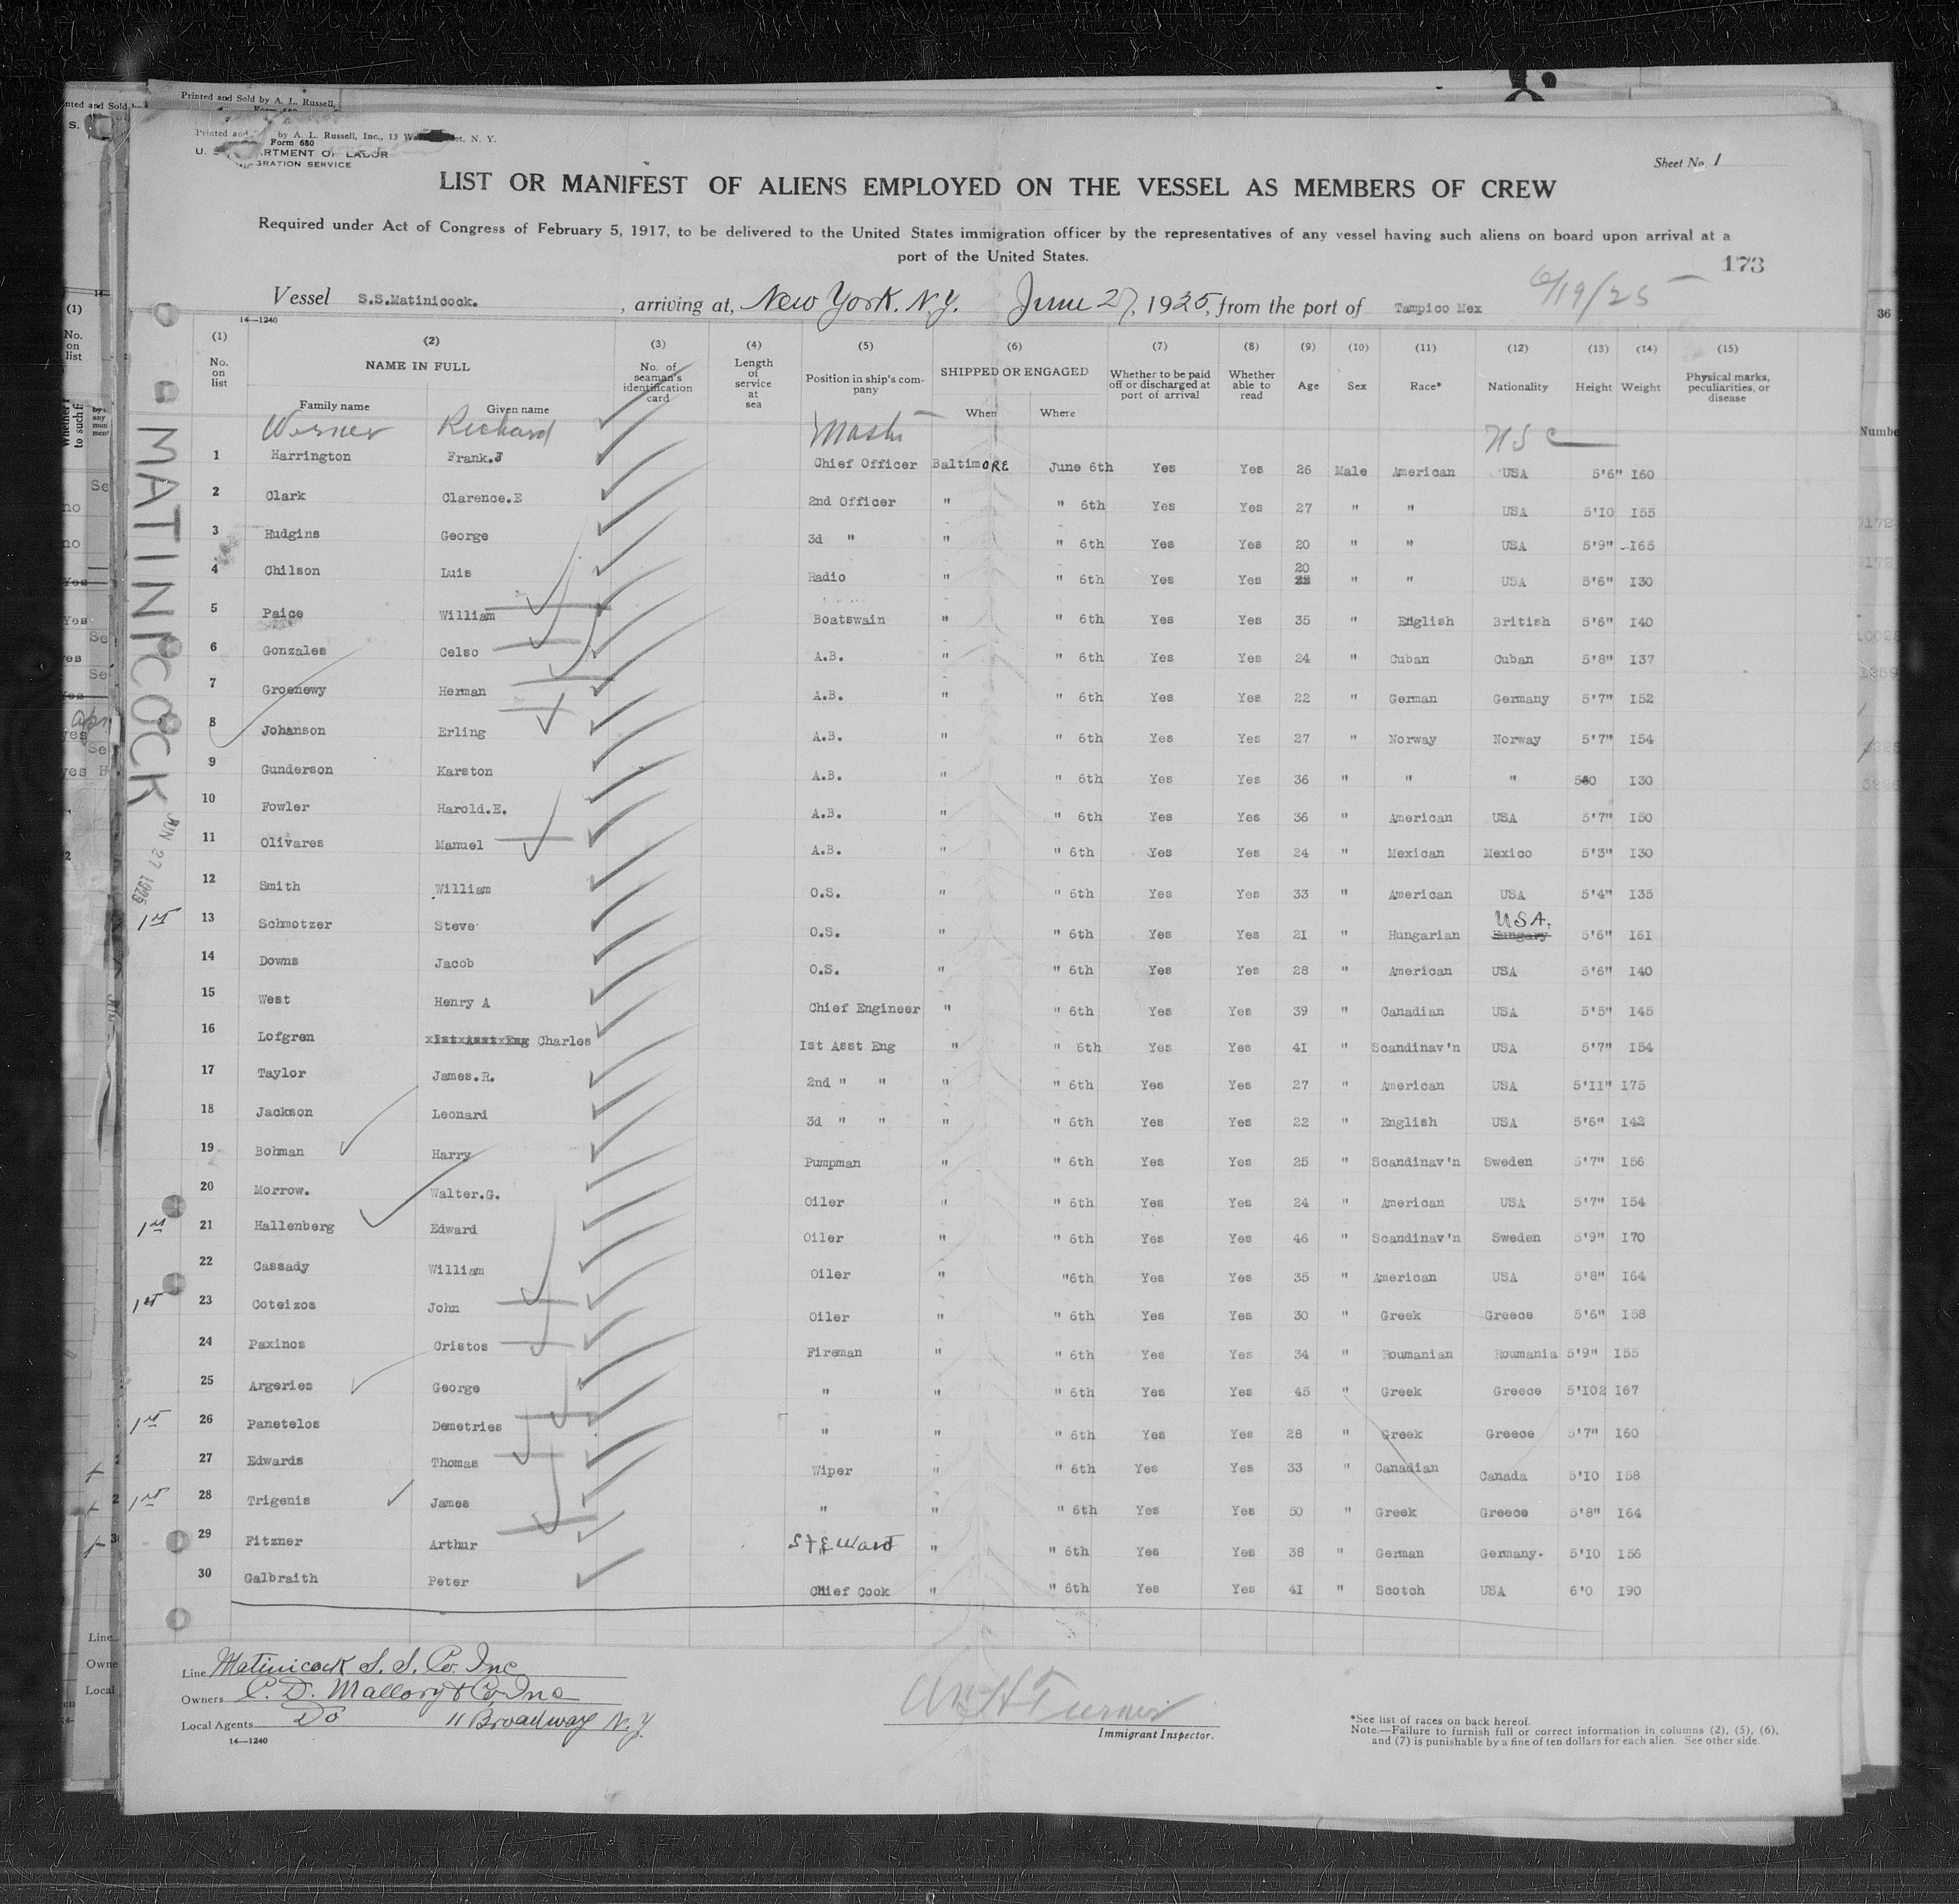 Printed and Sold by A. L. Russell,
Printed and by A. L. Russell, Inc., 13 W et, N. Y.
Form 680
U. S. DEPARTMENT OF LABOR
IMMIGRATION SERVICE
Sheet No. 1
LIST OR MANIFEST OF ALIENS EMPLOYED ON THE VESSEL AS MEMBERS OF CREW
Required under Act of Congress of February 5, 1917, to be delivered to the United States immigration officer by the representatives of any vessel having such aliens on board upon arrival at a
port of the United States.
173
6/19/25
Vessel S.S.Matinicock. , arriving at, New York. N.Y. June 27, 1925, from the port of Tampico Mex
14—1240
(1) (2) (3) (4) (5) (6) (7) (8) (9) (10) (11) (12) (13) (14) (15)
No. on list NAME IN FULL Family name Given name No. of seaman's identification card Length of service at sea Position in ship's company SHIPPED OR ENGAGED When Where Whether to be paid off or discharged at port of arrival Whether able to read Age Sex Race* Nationality Height Weight Physical marks, peculiarities, or disease
Werner Richard Mastr USC
1 Harrington Frank.J Chief Officer BaltimORE June 6th Yes Yes 26 Male American USA 5'6" I60
2 Clark Clarence.E 2nd Officer " " 6th Yes Yes 27 " " USA 5'IO I55
3 Hudgins George 3d " " " 6th Yes Yes 20 " " USA 5'9" I65
4 Chilson Luis Radio " " 6th Yes Yes 20 " " USA 5'6" I30
5 Paice William Boatswain " " 6th Yes Yes 35 " English British 5'6" I40
6 Gonzales Celso A.B. " " 6th Yes Yes 24 " Cuban Cuban 5'8" I37
7 Groenewy Herman A.B. " " 6th Yes Yes 22 " German Germany 5'7" I52
8 Johanson Erling A.B. " " 6th Yes Yes 27 " Norway Norway 5'7" I54
9 Gunderson Karston A.B. " " 6th Yes Yes 36 " " " I30
10 Fowler Harold.E. A.B. " " 6th Yes Yes 36 " American USA 5'7" I50
11 Olivares Manuel A.B. " " 6th Yes Yes 24 " Mexican Mexico 5'3" I30
12 Smith William O.S. " " 6th Yes Yes 33 " American USA 5'4" I35
1st 13 Schmotzer Steve O.S. " " 6th Yes Yes 2I " Hungarian Hungary USA. 5'6" I6I
14 Downs Jacob O.S. " " 6th Yes Yes 28 " American USA 5'6" I40
15 West Henry A Chief Engineer " " 6th Yes Yes 39 " Canadian USA 5'5" I45
16 Lofgren xIstxAsstxEng Charles Ist Asst Eng " " 6th Yes Yes 4I " Scandinav'n USA 5'7" I54
17 Taylor James.R. 2nd " " " " 6th Yes Yes 27 " American USA 5'II" I75
18 Jackson Leonard 3d " " " " 6th Yes Yes 22 " English USA 5'6" I42
19 Bohman Harry Pumpman " " 6th Yes Yes 25 " Scandinav'n Sweden 5'7" I56
20 Morrow. Walter.G. Oiler " " 6th Yes Yes 24 " American USA 5'7" I54
1st 21 Hallenberg Edward Oiler " " 6th Yes Yes 46 " Scandinav'n Sweden 5'9" I70
22 Cassady William Oiler " "6th Yes Yes 35 " American USA 5'8" I64
1st 23 Coteizos John Oiler " " 6th Yes Yes 30 " Greek Greece 5'6" I58
24 Paxinos Cristos Fireman " " 6th Yes Yes 34 " Roumanian Roumania 5'9" I55
25 Argeries George " " " 6th Yes Yes 45 " Greek Greece 5'IO2 I67
1st 26 Panetelos Demetries " " " 6th Yes Yes 28 " Greek Greece 5'7" I60
27 Edwards Thomas Wiper " " 6th Yes Yes 33 " Canadian Canada 5'IO I58
1st 28 Trigenis James " " " 6th Yes Yes 50 " Greek Greece 5'8" I64
29 Fitzner Arthur STEWard " " 6th Yes Yes 38 " German Germany. 5'IO I56
30 Galbraith Peter Chief Cook " " 6th Yes Yes 4I " Scotch USA 6'0 I90
MATINICOCK
JUN 27 1925
Line Matinicock S. S. Co. Inc
Owners C. D. Mallory & Co, Inc
Local Agents Do 11 Broadway N.Y.
14—1240
Wm H Turner
Immigrant Inspector.
*See list of races on back hereof.
Note.—Failure to furnish full or correct information in columns (2), (5), (6),
and (7) is punishable by a fine of ten dollars for each alien. See other side.
36